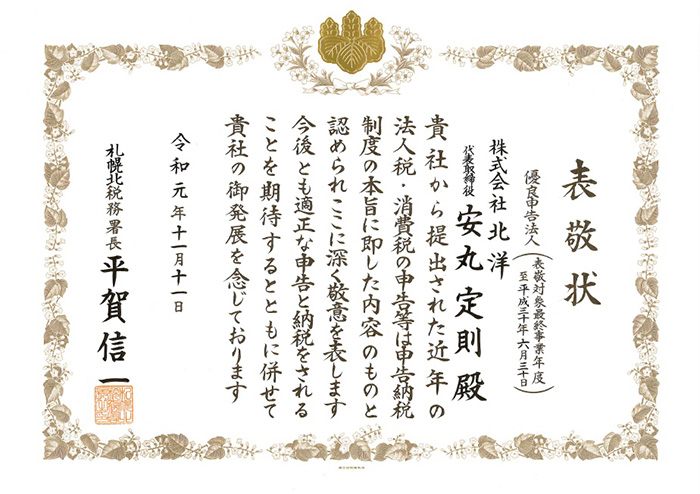 表敬状
優良申告法人(表敬対象最終事業年度
至平成三十年六月三十日)
株式会社北洋
代表取締役 安丸定則殿
貴社から提出された近年の
法人税・消費税の申告等は申告納税
制度の本旨に即した内容のものと
認められここに深く敬意を表します
今後とも適正な申告と納税をされる
ことを期待するとともに併せて
貴社の御発展を念じております
令和元年十一月十一日
札幌北税務署長 平賀信一